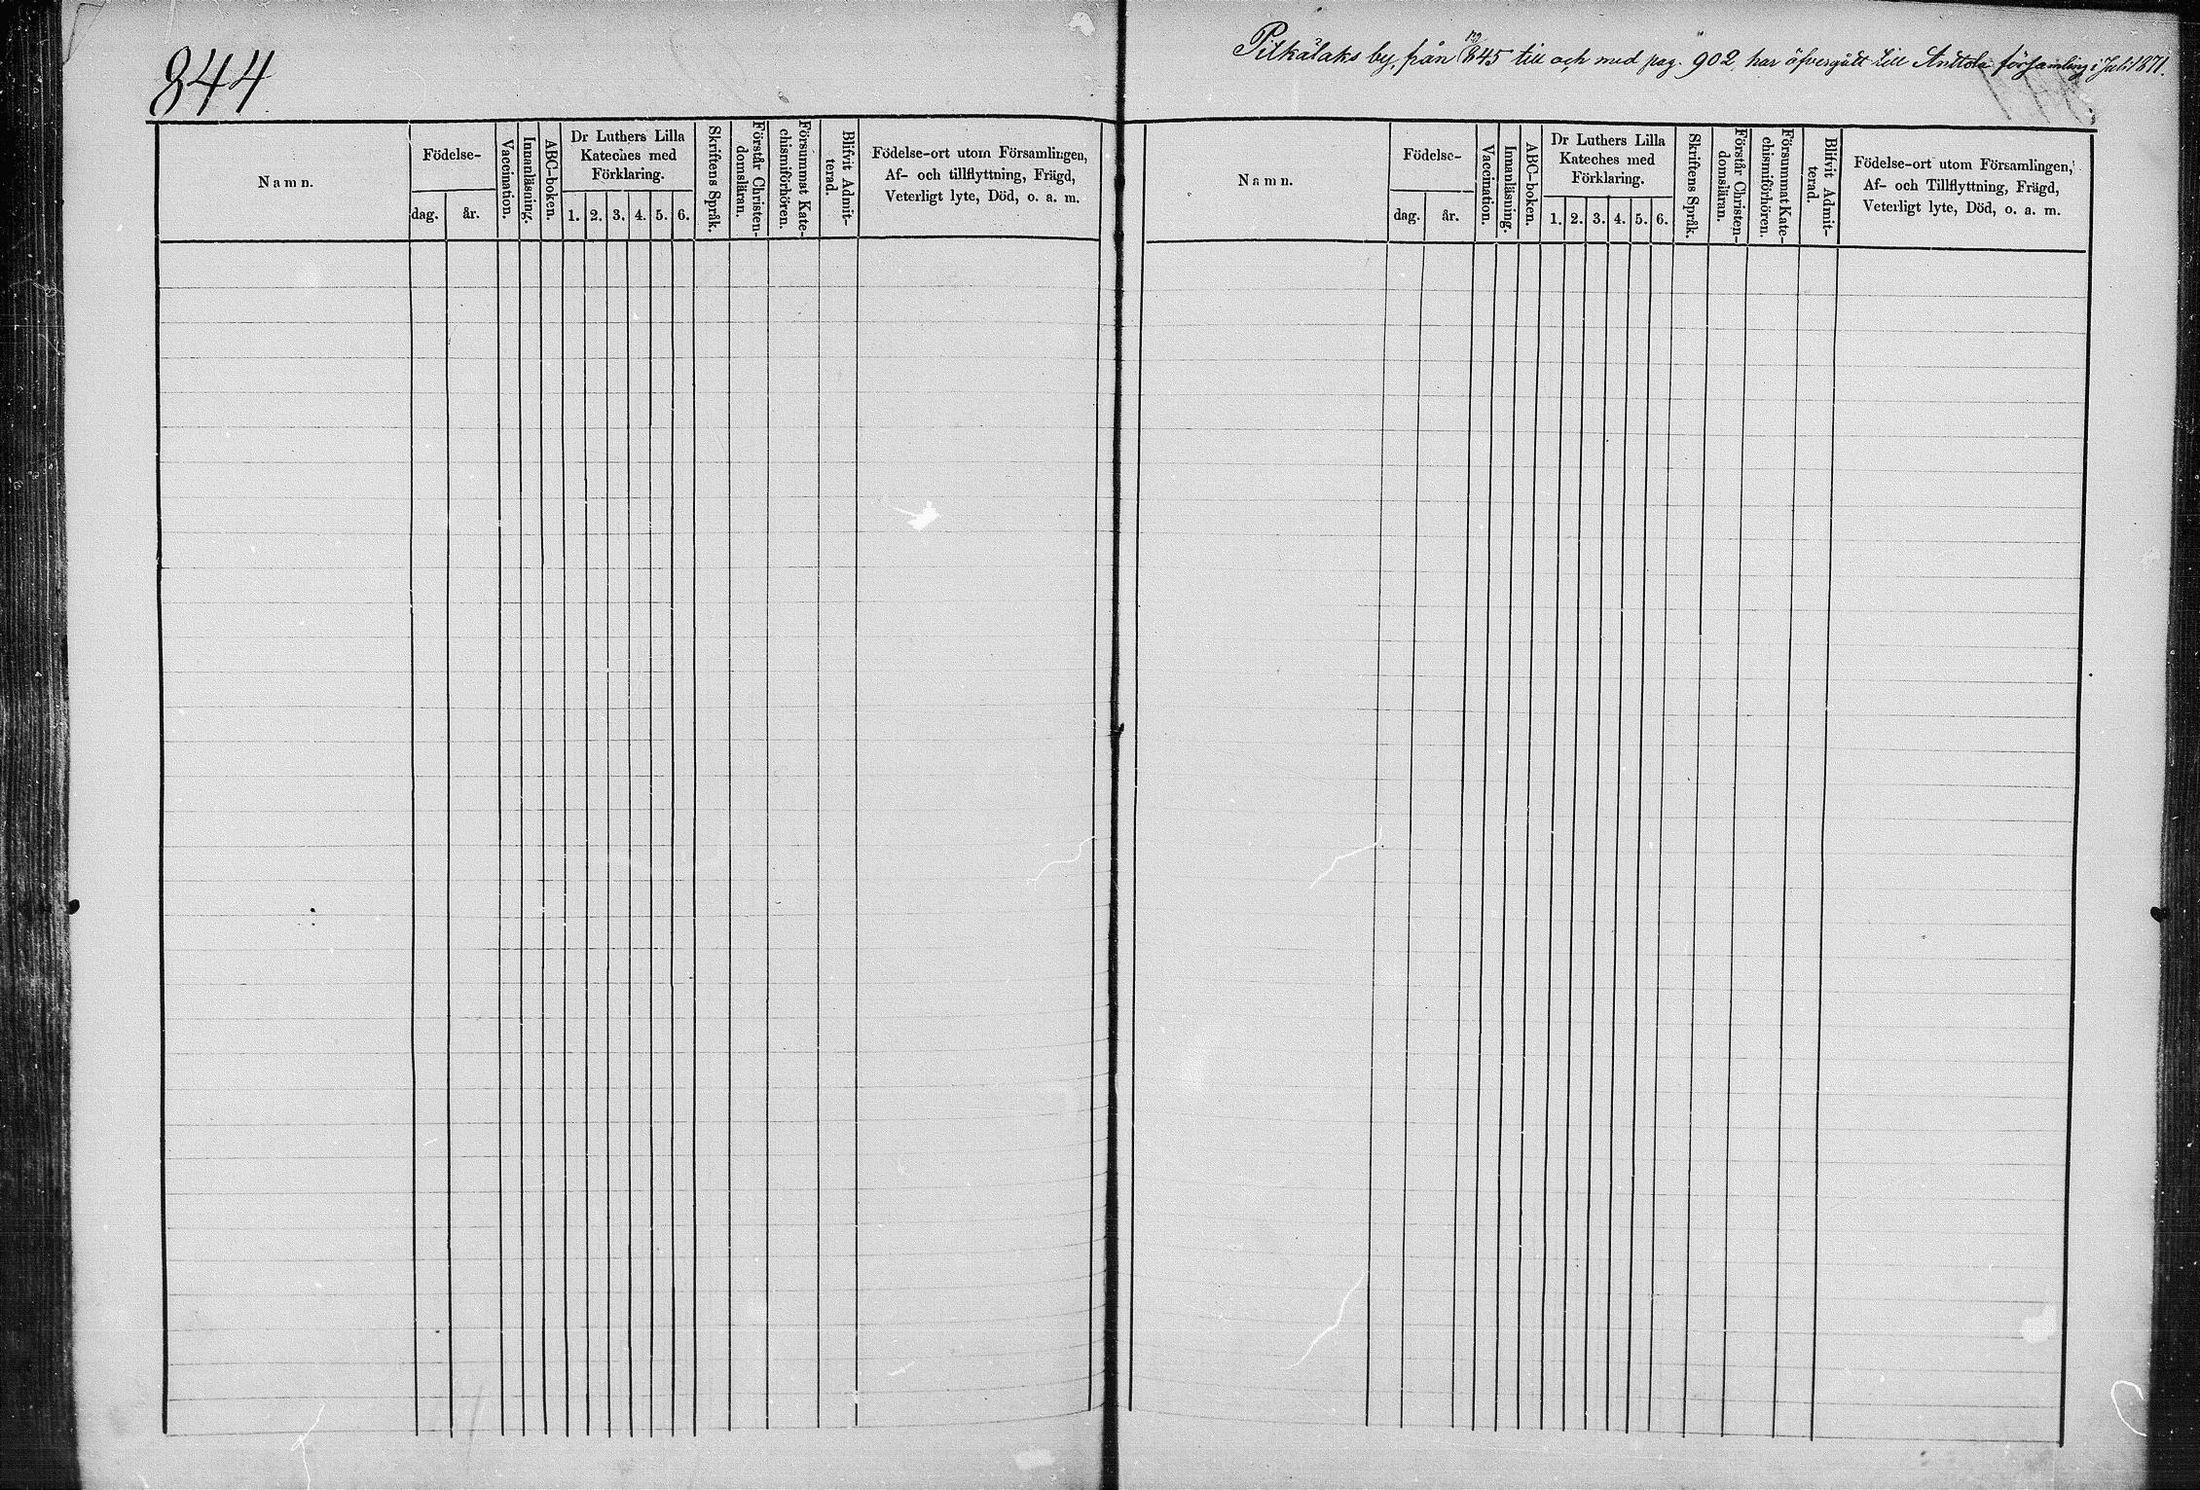 844
Namn.
Födelse-
dag. år.
Vaccination.
Innanläsning.
ABC-boken.
Dr Luthers Lilla
Kateches med
Förklaring.
1. 2. 3. 4. 5. 6.
Skriftens Språk.
Förstår Christen-
domsläran.
Försummat Kate-
chismiförhören.
Blifvit Admit-
terad.
Födelse-ort utom Församlingen,
Af- och tillflyttning, Frägd,
Veterligt lyte, Död, o. a. m.
Pitkälaks by, från pag 845 till och med pag. 902, har öfvergått till Anttola församling i Juli 1871.
Namn.
Födelse-
dag. år.
Vaccination.
Innanläsning.
ABC-boken.
Dr Luthers Lilla
Kateches med
Förklaring.
1. 2. 3. 4. 5. 6.
Skriftens Språk.
Förstår Christen-
domsläran.
Försummat Kate-
chismiförhören.
Blifvit Admit-
terad.
Födelse-ort utom Församlingen,
Af- och Tillflyttning, Frägd,
Veterligt lyte, Död, o. a. m.